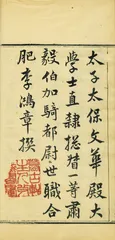 太子太保文華殿大
學士直隸總督一等肅
毅伯加騎都尉世職合
肥李鴻章撰